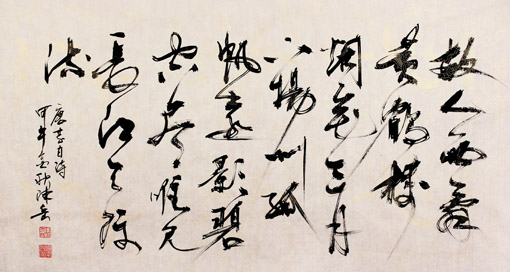 故人西辞
黄鹤楼
烟花三月
下揚州孤
帆远影碧
空尽唯见
長江天际
流
李白诗
甲午金秋